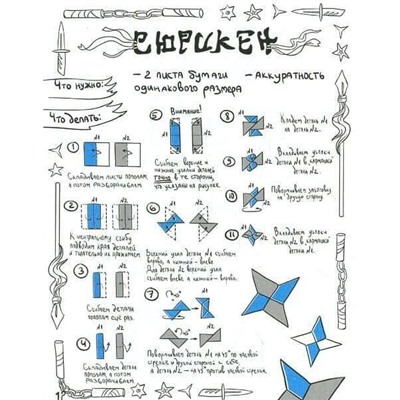 СЮРИКЕН
Что нужно:
– 2 листа бумаги
одинакового размера
– аккуратность
Что делать:
1
№1
№2
Складываем листы пополам,
а потом разворачиваем
2
№1
№2
К центральному сгибу
подводим края деталей
и тщательно их прижимаем
3
№1
№2
Сгибаем детали
пополам ещё раз.
4
№1
№2
Складываем детали
пополам, а потом
разворачиваем
5
Внимание!
№1
№2
Сгибаем верхние и
нижние уголки деталей
точно в те стороны,
что указаны на рисунке.
6
№1
№2
Верхний угол детали №1 сгибаем
вправо, а нижний - влево.
Для детали №2 верхний угол
сгибаем влево, а нижний - вправо.
7
№1
№2
Поворачиваем деталь №1 на 45° по часовой
стрелке и другой стороной к себе,
а деталь №2 - на 45° против часовой стрелки.
8
№1
№2
Кладём деталь №1
на деталь №2.
9
Вкладываем уголки
детали №1 в кармашки
детали №2.
10
Поворачиваем заготовку
на другую сторону
11
Вкладываем уголки
детали №2 в кармашки
детали №1.